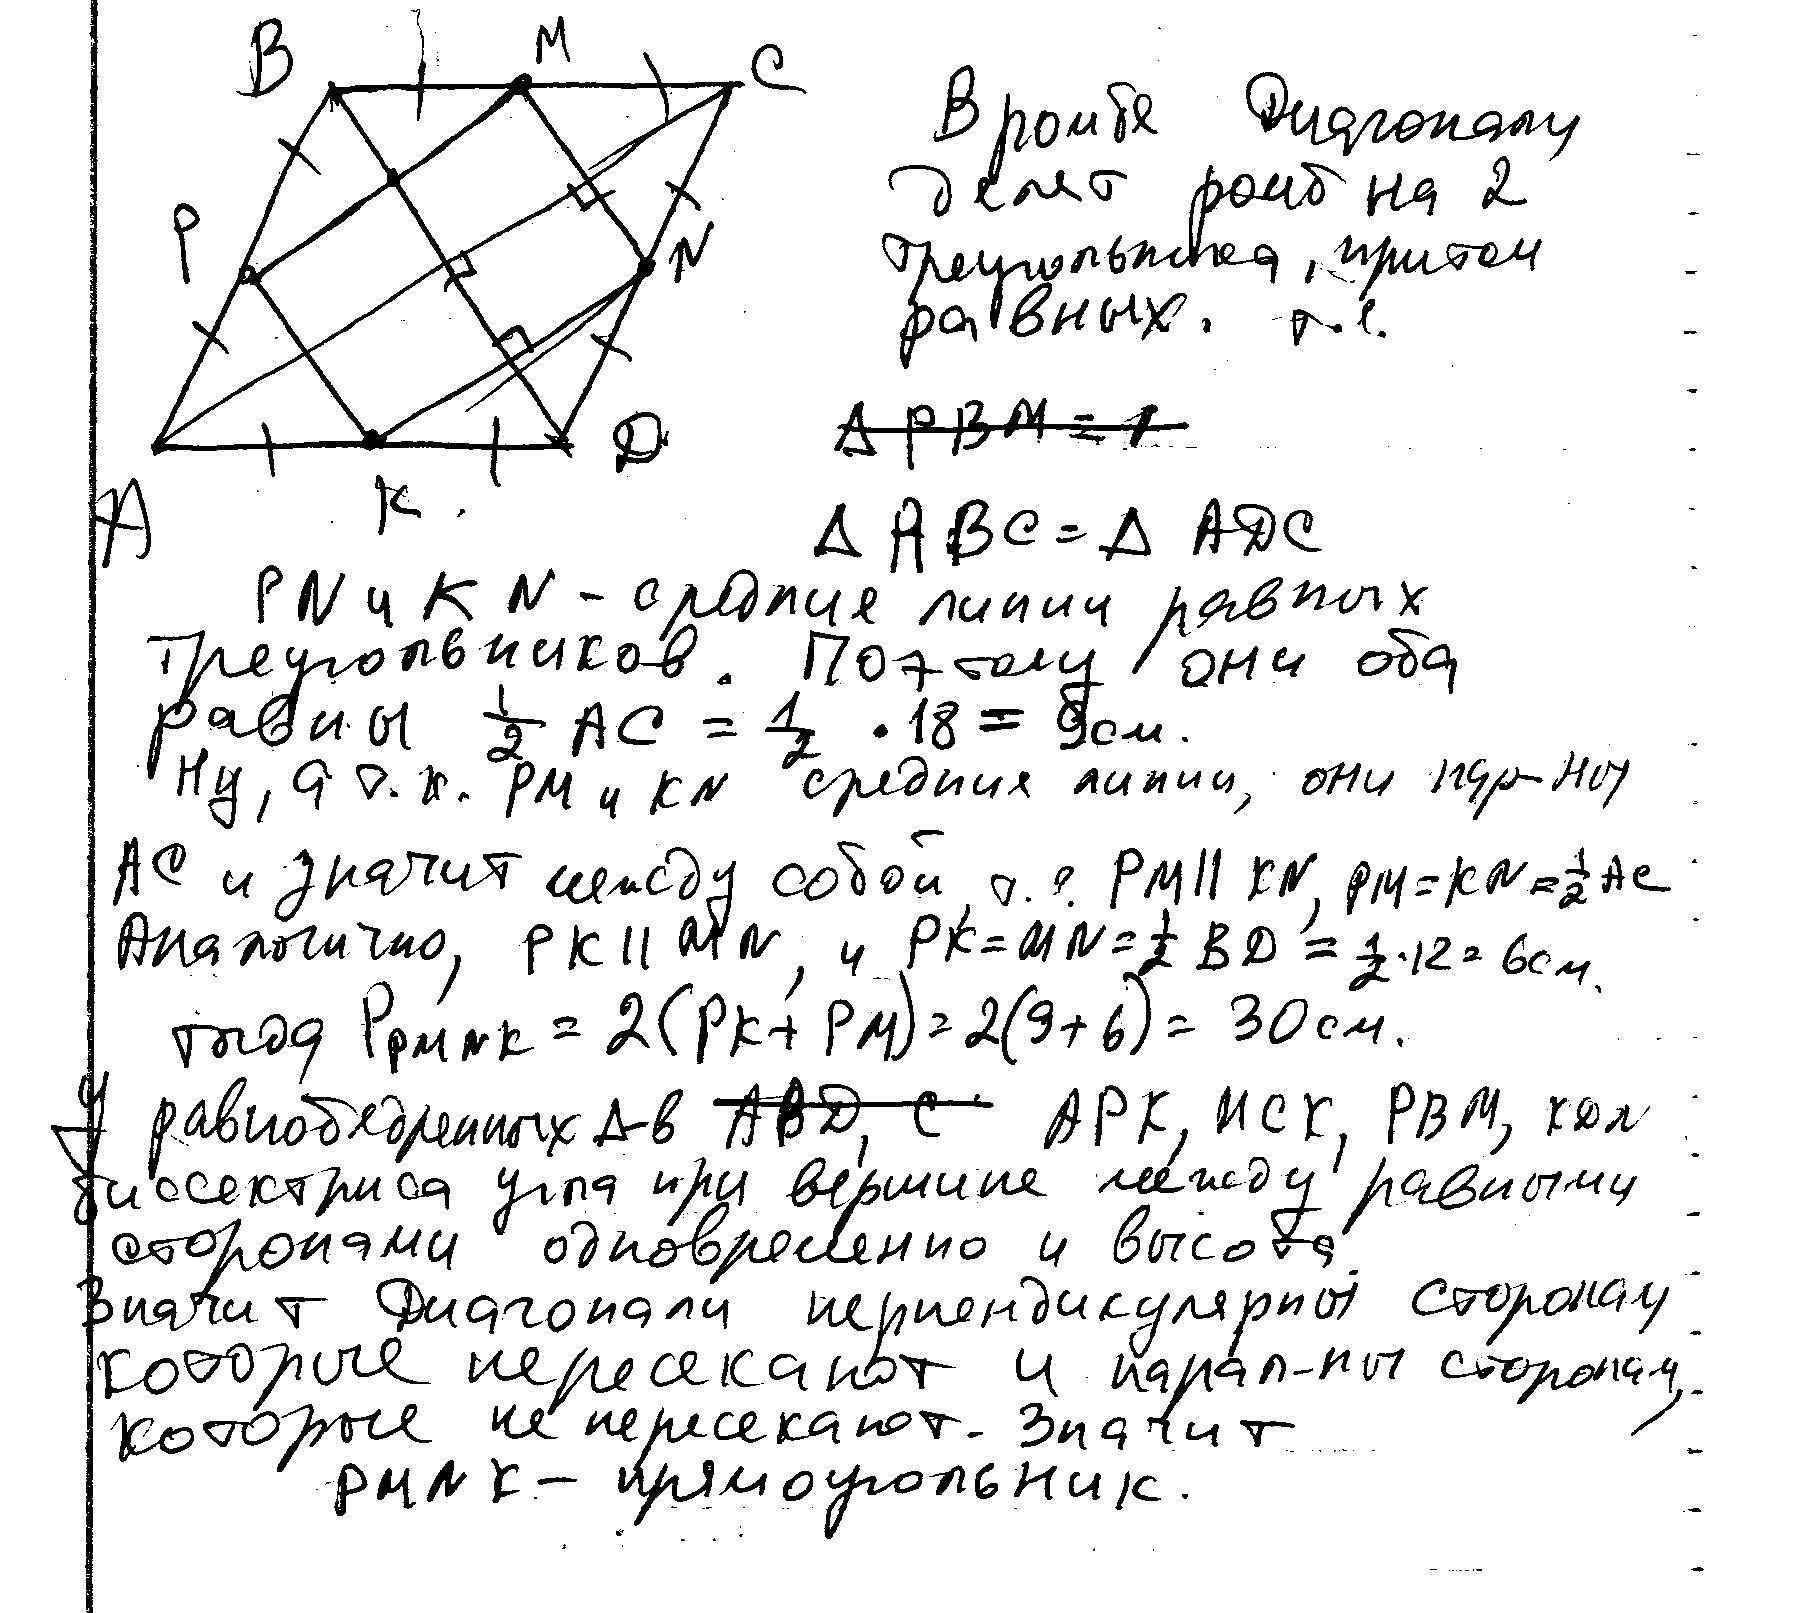 B M C
P N
A K D
В ромбе Диагонали
делят ромб на 2
треугольника, притом
равных. т.е.
Δ PBM = 1
Δ ABC = Δ ADC
PN и KN - средние линии равных
треугольников. Поэтому они оба
равны 1/2 AC = 1/2 · 18 = 9 см.
Ну, а т.к. PM и KN средние линии, они пар-ны
AC и значит между собой, т.е. PM || KN, PM = KN = 1/2 AC
Аналогично, PK || MN, и PK = MN = 1/2 BD = 1/2 · 12 = 6 см.
тогда P PMNK = 2(PK + PM) = 2(9 + 6) = 30 см.
У равнобедренных Δ-в ABD, C APK, NCK, PBM, KDN
биссектриса угла при вершине между равными
сторонами одновременно и высота.
Значит Диагонали перпендикулярны сторонам
которые пересекают и парал-ны сторонам,
которые не пересекают. Значит
PMNK - прямоугольник.